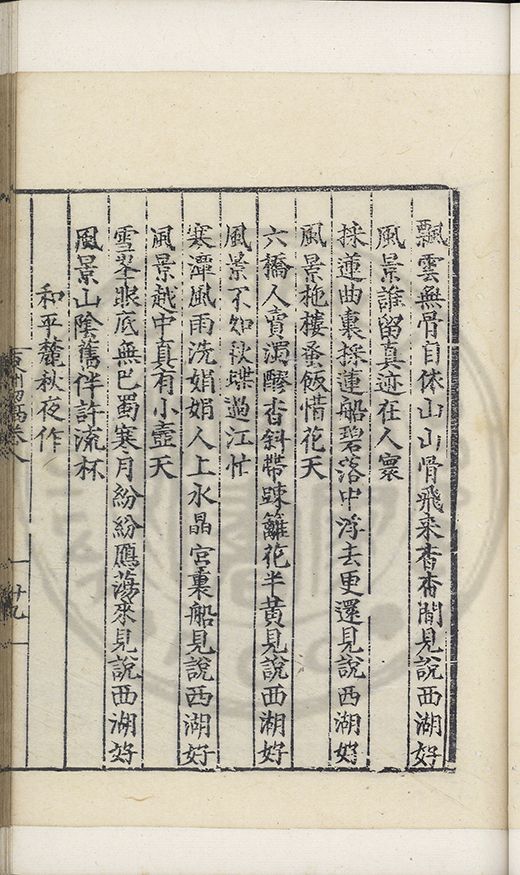 飄雲無骨自依山山骨飛来杳杳間見說西湖好
風景誰留真迹在人寰
採蓮曲裏採蓮船碧落中浮去更還見說西湖好
風景柁樓蚤飯惜花天
六橋人賣濁醪香斜帶踈籬花半黃見說西湖好
風景不知秋蝶過江忙
寒潭風雨洗娟娟人上水晶宮裏船見說西湖好
風景越中真有小壺天
雪峯眼底無巴蜀寒月紛紛鴈蕩來見說西湖好
風景山陰舊伴許流杯
和平麓秋夜作
卷八
十九